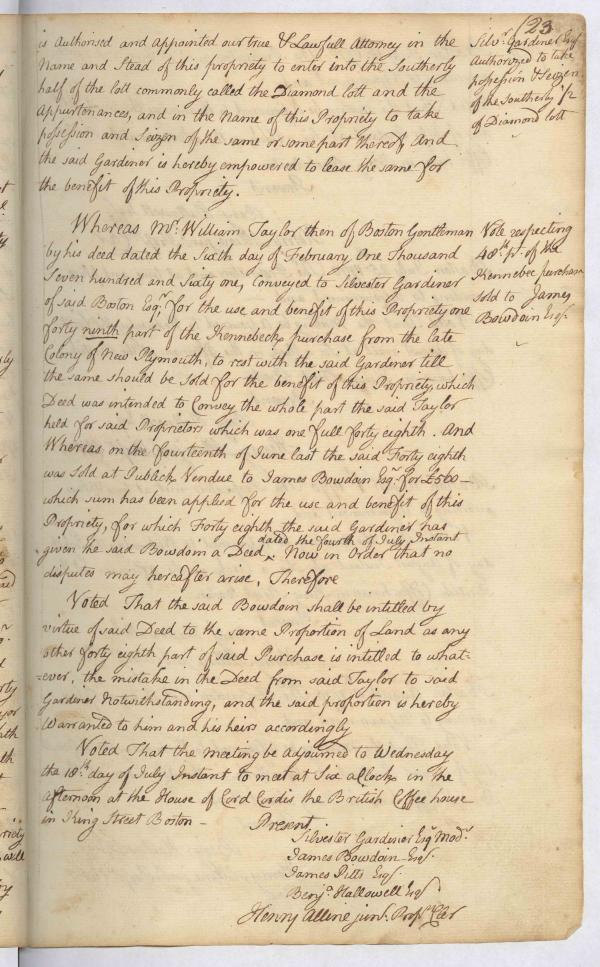 23
is Authorised and appointed our true & Lawfull Attorney in the
Name and Stead of this propriety to enter into the Southerly
half of the lott commonly called the Diamond lott and the
Appurtenances, and in the Name of this Propriety to take
possession and Seizen of the same or some part thereof, And
the said Gardiner is hereby empowered to lease the same for
the benefit of this Propriety.
Silvr. Gardiner Esqr
Authorized to take
possession & Seizen
of the Southerly 1/2
of Diamond lott
Whereas Mr. William Taylor then of Boston Gentleman
by his deed dated the Sixth day of February One Thousand
Seven hundred and Sixty one, Conveyed to Silvester Gardiner
of said Boston Esqr. for the use and benefit of this Propriety one
forty ninth part of the Kennebeck purchase from the late
Colony of New Plymouth, to rest with the said Gardiner till
the same should be Sold for the benefit of this Propriety, which
Deed was intended to Convey the whole part the said Taylor
held for said Proprietors which was one full forty eighth. And
Whereas on the fourteenth of June last the said Forty eighth
was Sold at Publick Vendue to James Bowdoin Esqr. for £560 -
which sum has been applied for the use and benefit of this
Propriety, for which Forty eighth the said Gardiner has
dated the fourth of July Instant
given the said Bowdoin a Deed ‸. Now in Order that no
disputes may hereafter arise, Therefore
Vote respecting
48th pt. of the
Kennebec purchase
Sold to James
Bowdoin Esqr.
Voted That the said Bowdoin shall be intitled by
virtue of said Deed to the same Proportion of Land as any
other forty eighth part of said Purchase is intitled to what=
=ever, the mistake in the Deed from said Taylor to said
Gardiner Notwithstanding, and the said proportion is hereby
Warranted to him and his heirs accordingly
Voted That the meeting be adjourned to Wednesday
the 18th. day of July Instant to meet at Six a Clock in the
afternoon at the House of Cord Cordis the British Coffee house
in King Street Boston -
Present,
Silvester Gardiner Esqr. Modr.
James Bowdoin Esqr.
James Pitts Esqr.
Benja. Hallowell Esqr.
Henry Alline junr. Proprs. Cler